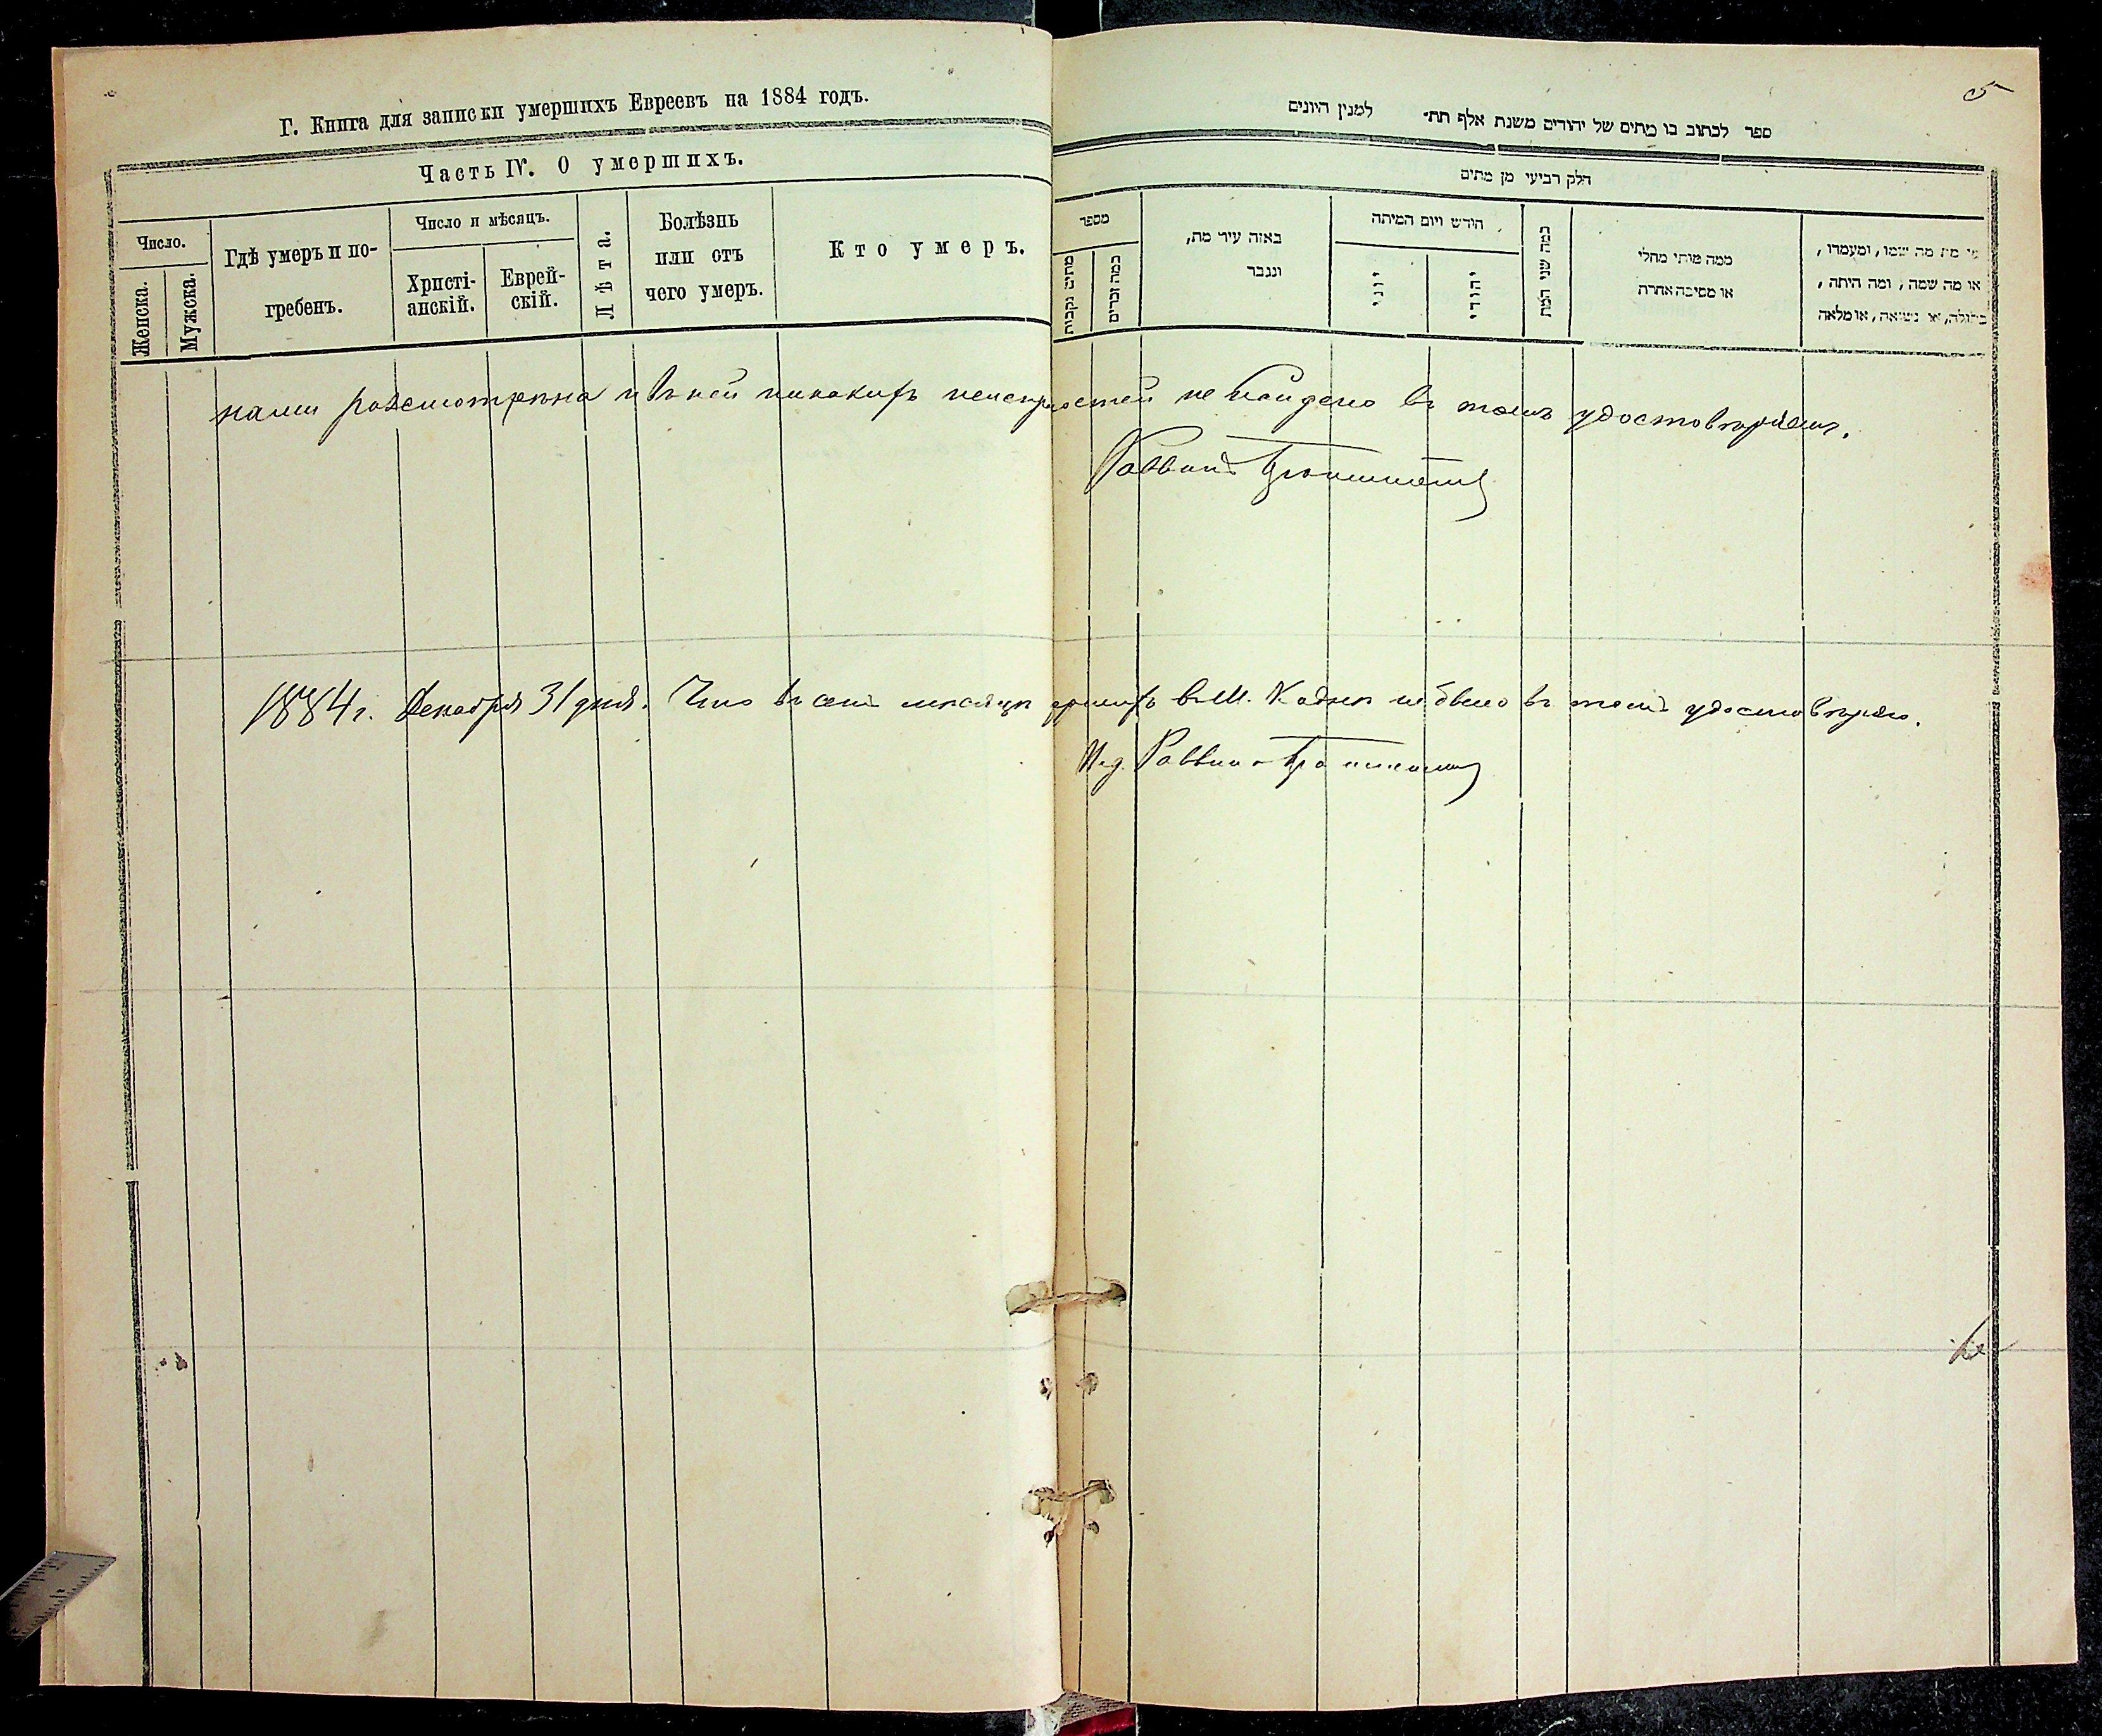 Г. Книга для записки умершихъ Евреевъ на 1884 годъ.
Часть IV. О умершихъ.
Число.
Женска.
Мужска.
Гдѣ умеръ и по-
гребенъ.
Число и мѣсяцъ.
Христі-
анскій.
Еврей-
скій.
Лѣта.
Болѣзнь
или отъ
чего умеръ.
Кто умеръ.
ספר לכתוב בו מתים של יהודים משנת אלף תת״ למנין היונים
5
חלק רביעי מן מתים
מספר
מתים נקבות
כמה זכרים
באזה עיר מת,
ונגבר
חודש ויום המיתה
יוני
יהודי
כמה שני המת
ממה מותי מחלי
או מסיבה אחרת
מי מת מה שמו, ומעמדו,
או מה שמה, ומה היתה,
בתולה, או נשואה, או מלאה
нами разсмотрѣна и въ ней никакихъ неисправностей не найдено въ томъ удостовѣряемъ.
Раввинъ
1884 г. Декабря 31 дня. Что въ семъ мѣсяцѣ умершихъ въ М. не было въ томъ удостовѣряю.
Раввинъ